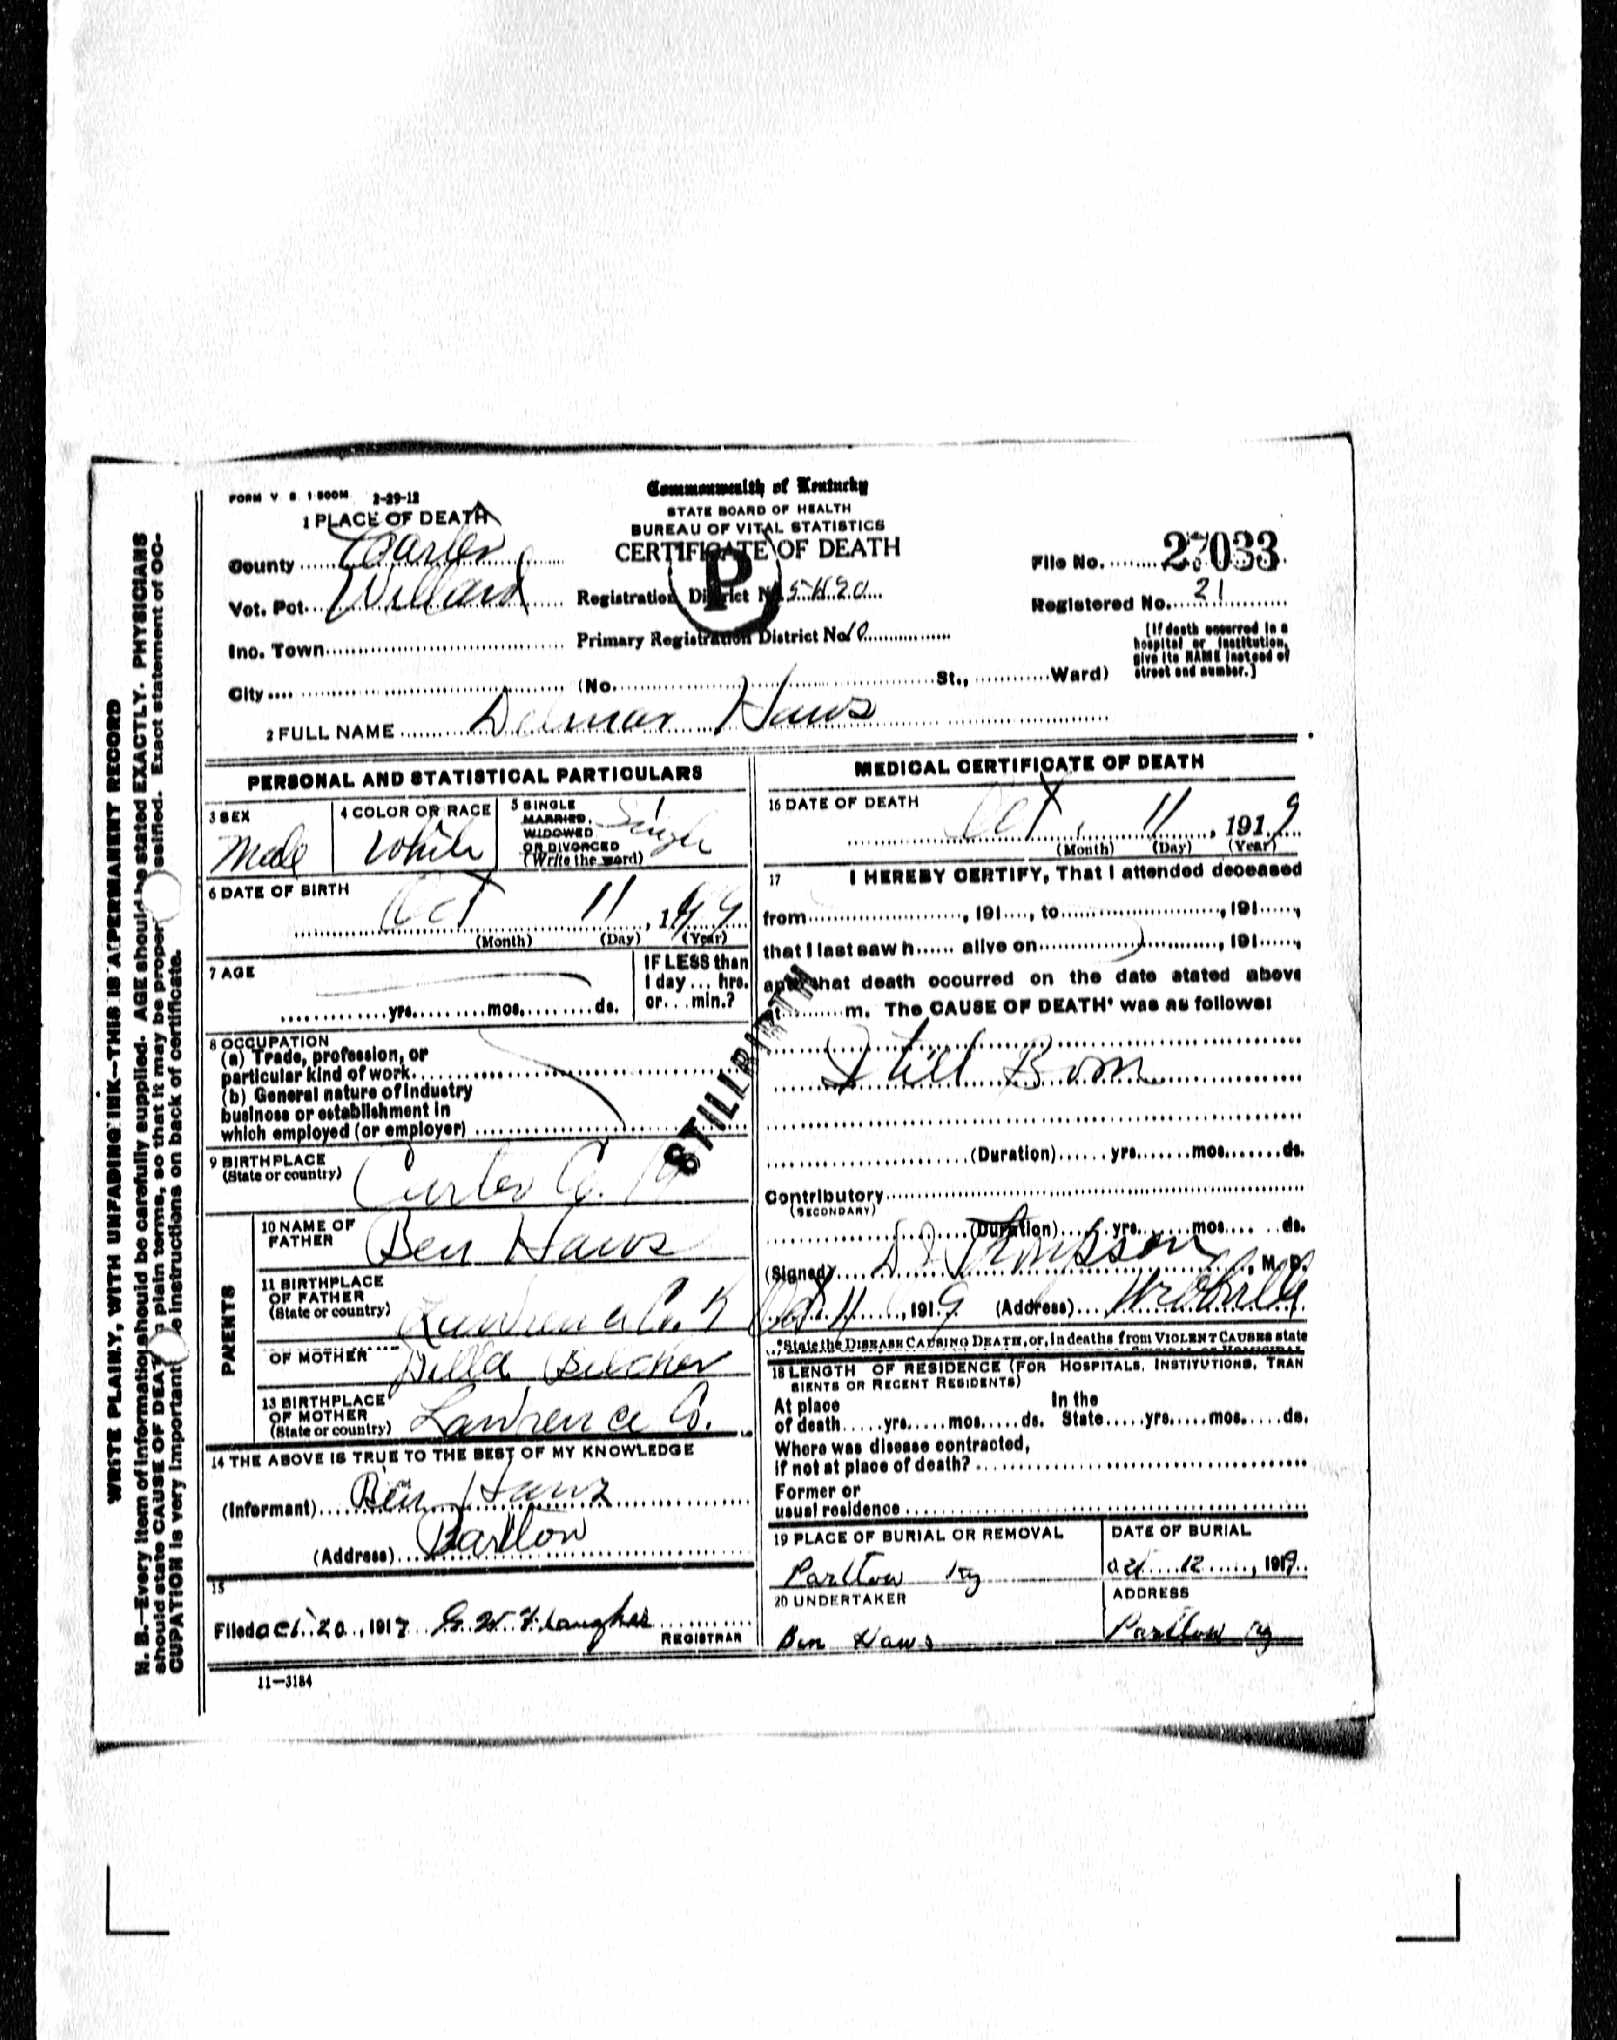 WRITE PLAINLY, WITH UNFADING INK—THIS IS A PERMANENT RECORD
N. B.—Every item of information should be carefully supplied. AGE should be stated EXACTLY. PHYSICIANS
should state CAUSE OF DEAT plain terms, so that it may be proper ssified. Exact statement of OC-
CUPATION is very important instructions on back of certificate.
FORM V. S. 1 500M 2-29-12
Commonwealth of Kentucky
STATE BOARD OF HEALTH
BUREAU OF VITAL STATISTICS
CERTIFICATE OF DEATH
P
1 PLACE OF DEATH
County Carter
Vot. Pct. Willard
Inc. Town
City (No. St., Ward)
Registration District No.
Primary Registration District No. 10
File No. 27033
Registered No. 21
[If death occurred in a
hospital or institution,
give its NAME instead of
street and number.]
2 FULL NAME Delmar Haws
PERSONAL AND STATISTICAL PARTICULARS
3 SEX
Male
4 COLOR OR RACE
White
5 SINGLE
MARRIED,
WIDOWED
OR DIVORCED
(Write the word)
Single
6 DATE OF BIRTH
Oct 11, 1
(Month) (Day) (Year)
7 AGE
yrs. mos. ds.
IF LESS than
1 day ... hrs.
or ... min.?
8 OCCUPATION
(a) Trade, profession, or
particular kind of work
(b) General nature of industry
business or establishment in
which employed (or employer)
STILLBIRTH
9 BIRTHPLACE
(State or country)
Carter Co. Ky
PARENTS
10 NAME OF
FATHER
Ben Haws
11 BIRTHPLACE
OF FATHER
(State or country)
Lawrence Co. K
OF MOTHER
Belcher
13 BIRTHPLACE
OF MOTHER
(State or country)
Lawrence Co.
14 THE ABOVE IS TRUE TO THE BEST OF MY KNOWLEDGE
(Informant) Ben Haws
(Address) Partlow
15
Filed Oct 20, 191
REGISTRAR
11—3184
MEDICAL CERTIFICATE OF DEATH
16 DATE OF DEATH
Oct. 11, 1919
(Month) (Day) (Year)
17 I HEREBY CERTIFY, That I attended deceased
from , 191 , to , 191 ,
that I last saw h alive on , 191 ,
and that death occurred on the date stated above
at m. The CAUSE OF DEATH* was as follows:
Still Born
(Duration) yrs. mos. ds.
Contributory
(SECONDARY)
(Duration) yrs. mos. ds.
(Signed) Thompson, M. D.
Oct 11, 1919 (Address)
*State the DISEASE CAUSING DEATH, or, in deaths from VIOLENT CAUSES state
18 LENGTH OF RESIDENCE (FOR HOSPITALS, INSTITUTIONS, TRAN
SIENTS OR RECENT RESIDENTS)
At place In the
of death yrs. mos. ds. State yrs. mos. ds.
Where was disease contracted,
if not at place of death?
Former or
usual residence
19 PLACE OF BURIAL OR REMOVAL
Partlow Ky
DATE OF BURIAL
Oct 12, 1919
20 UNDERTAKER
Ben Haws
ADDRESS
Partlow Ky